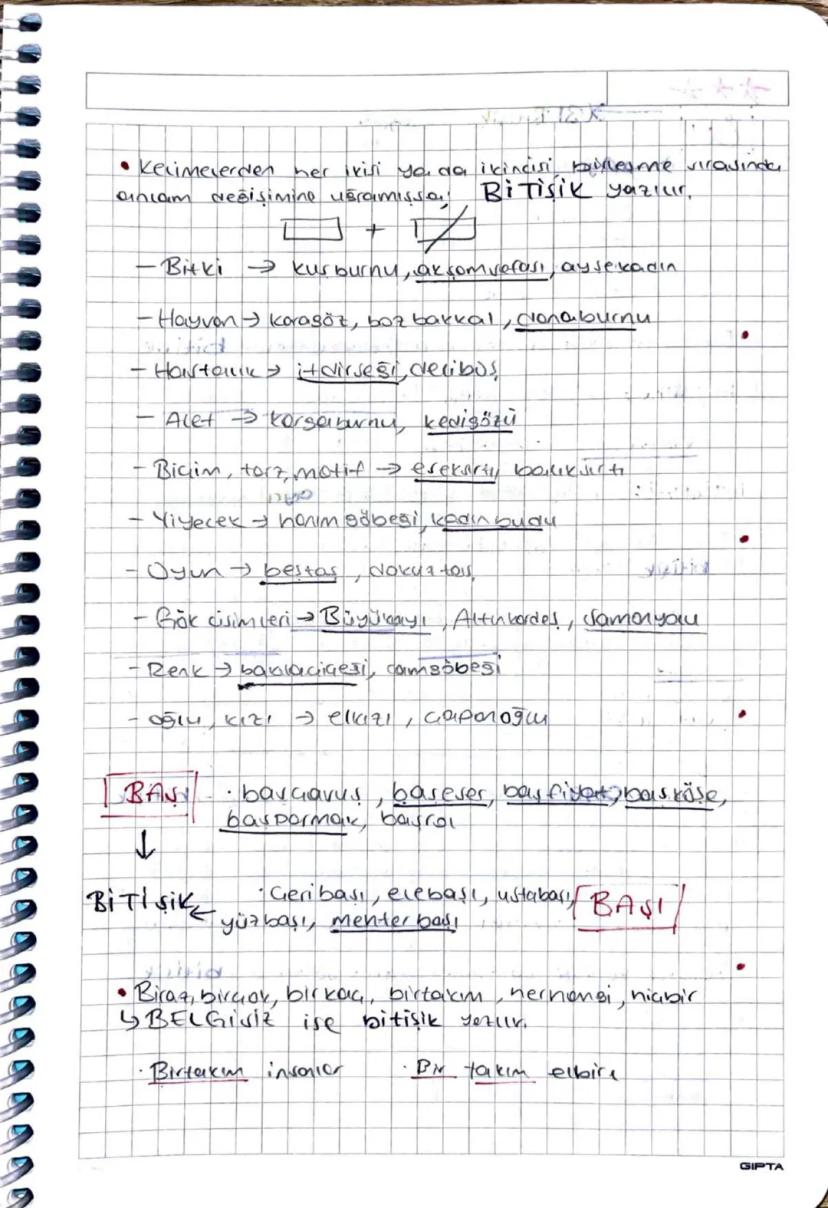 • Kelimelerden her ikisi ya da ikincisi, birleşme sırasında
anlam değişimine uğramışsa; BİTİŞİK yazılır.
+
– Bitki → kuşburnu, akşamsefası, ayşekadın
– Hayvan → karagöz, bozbakkal, danaburnu
– Hastalık → itdirseği, delibaş
– Alet → kargaburnu, kedigözü
– Biçim, tarz, motif → eşeksırtı, balıksırtı
– Yiyecek → hanımgöbeği, kadınbudu
– Oyun → beştaş, dokuztaş
– Gök cisimleri → Büyükayı, Altınkardeş, Samanyolu
– Renk → baklaçiçeği, camgöbeği
– oğlu, kızı → elkızı, çapanoğlu
BAŞ · başçavuş, başeser, başfiyat, başköşe,
başparmak, başrol
↓
BİTİŞİK ← · Çeribaşı, elebaşı, ustabaşı, BAŞI
yüzbaşı, mehterbaşı
• Biraz, birçok, birkaç, birtakım, herhangi, hiçbir
↳ BELGİSİZ ise bitişik yazılır.
· Birtakım insanlar · Bir takım elbise
GIPTA